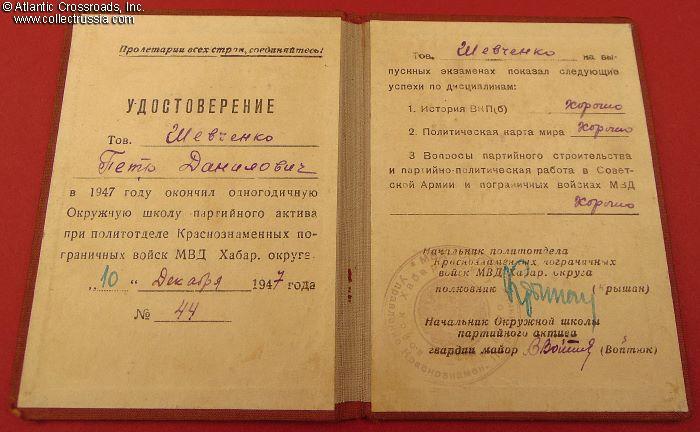 © Atlantic Crossroads, Inc.
www.collectrussia.com
Пролетарии всех стран, соединяйтесь!
УДОСТОВЕРЕНИЕ
Тов. Шевченко
Петр Данилович
в 1947 году окончил одногодичную
Окружную школу партийного актива
при политотделе Краснознаменных по-
граничных войск МВД Хабар. округа
„10" Декабря 1947 года
№ 44
Тов. Шевченко на вы-
пускных экзаменах показал следующие
успехи по дисциплинам:
1. История ВКП(б) Хорошо
2. Политическая карта мира Хорошо
3 Вопросы партийного строительства
и партийно-политическая работа в Совет-
ской Армии и пограничных войсках МВД
Хорошо
Начальник политотдела
Краснознаменных пограничных
войск МВД Хабар. округа
полковник (Крышан)
Начальник Окружной школы
партийного актива
гвардии майор (Войтюк)